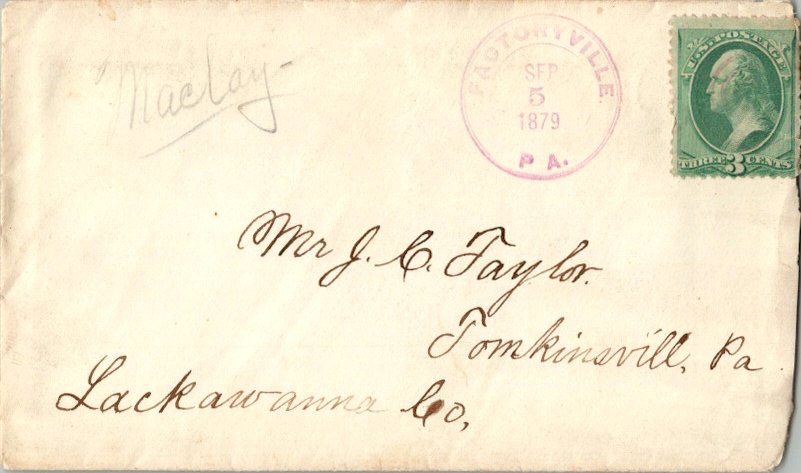 Maclay
FACTORYVILLE
SEP
5
1879
PA.
U.S. POSTAGE
THREE 3 CENTS
Mr J. C. Taylor.
Tomkinsvill, Pa
Lackawanna Co,